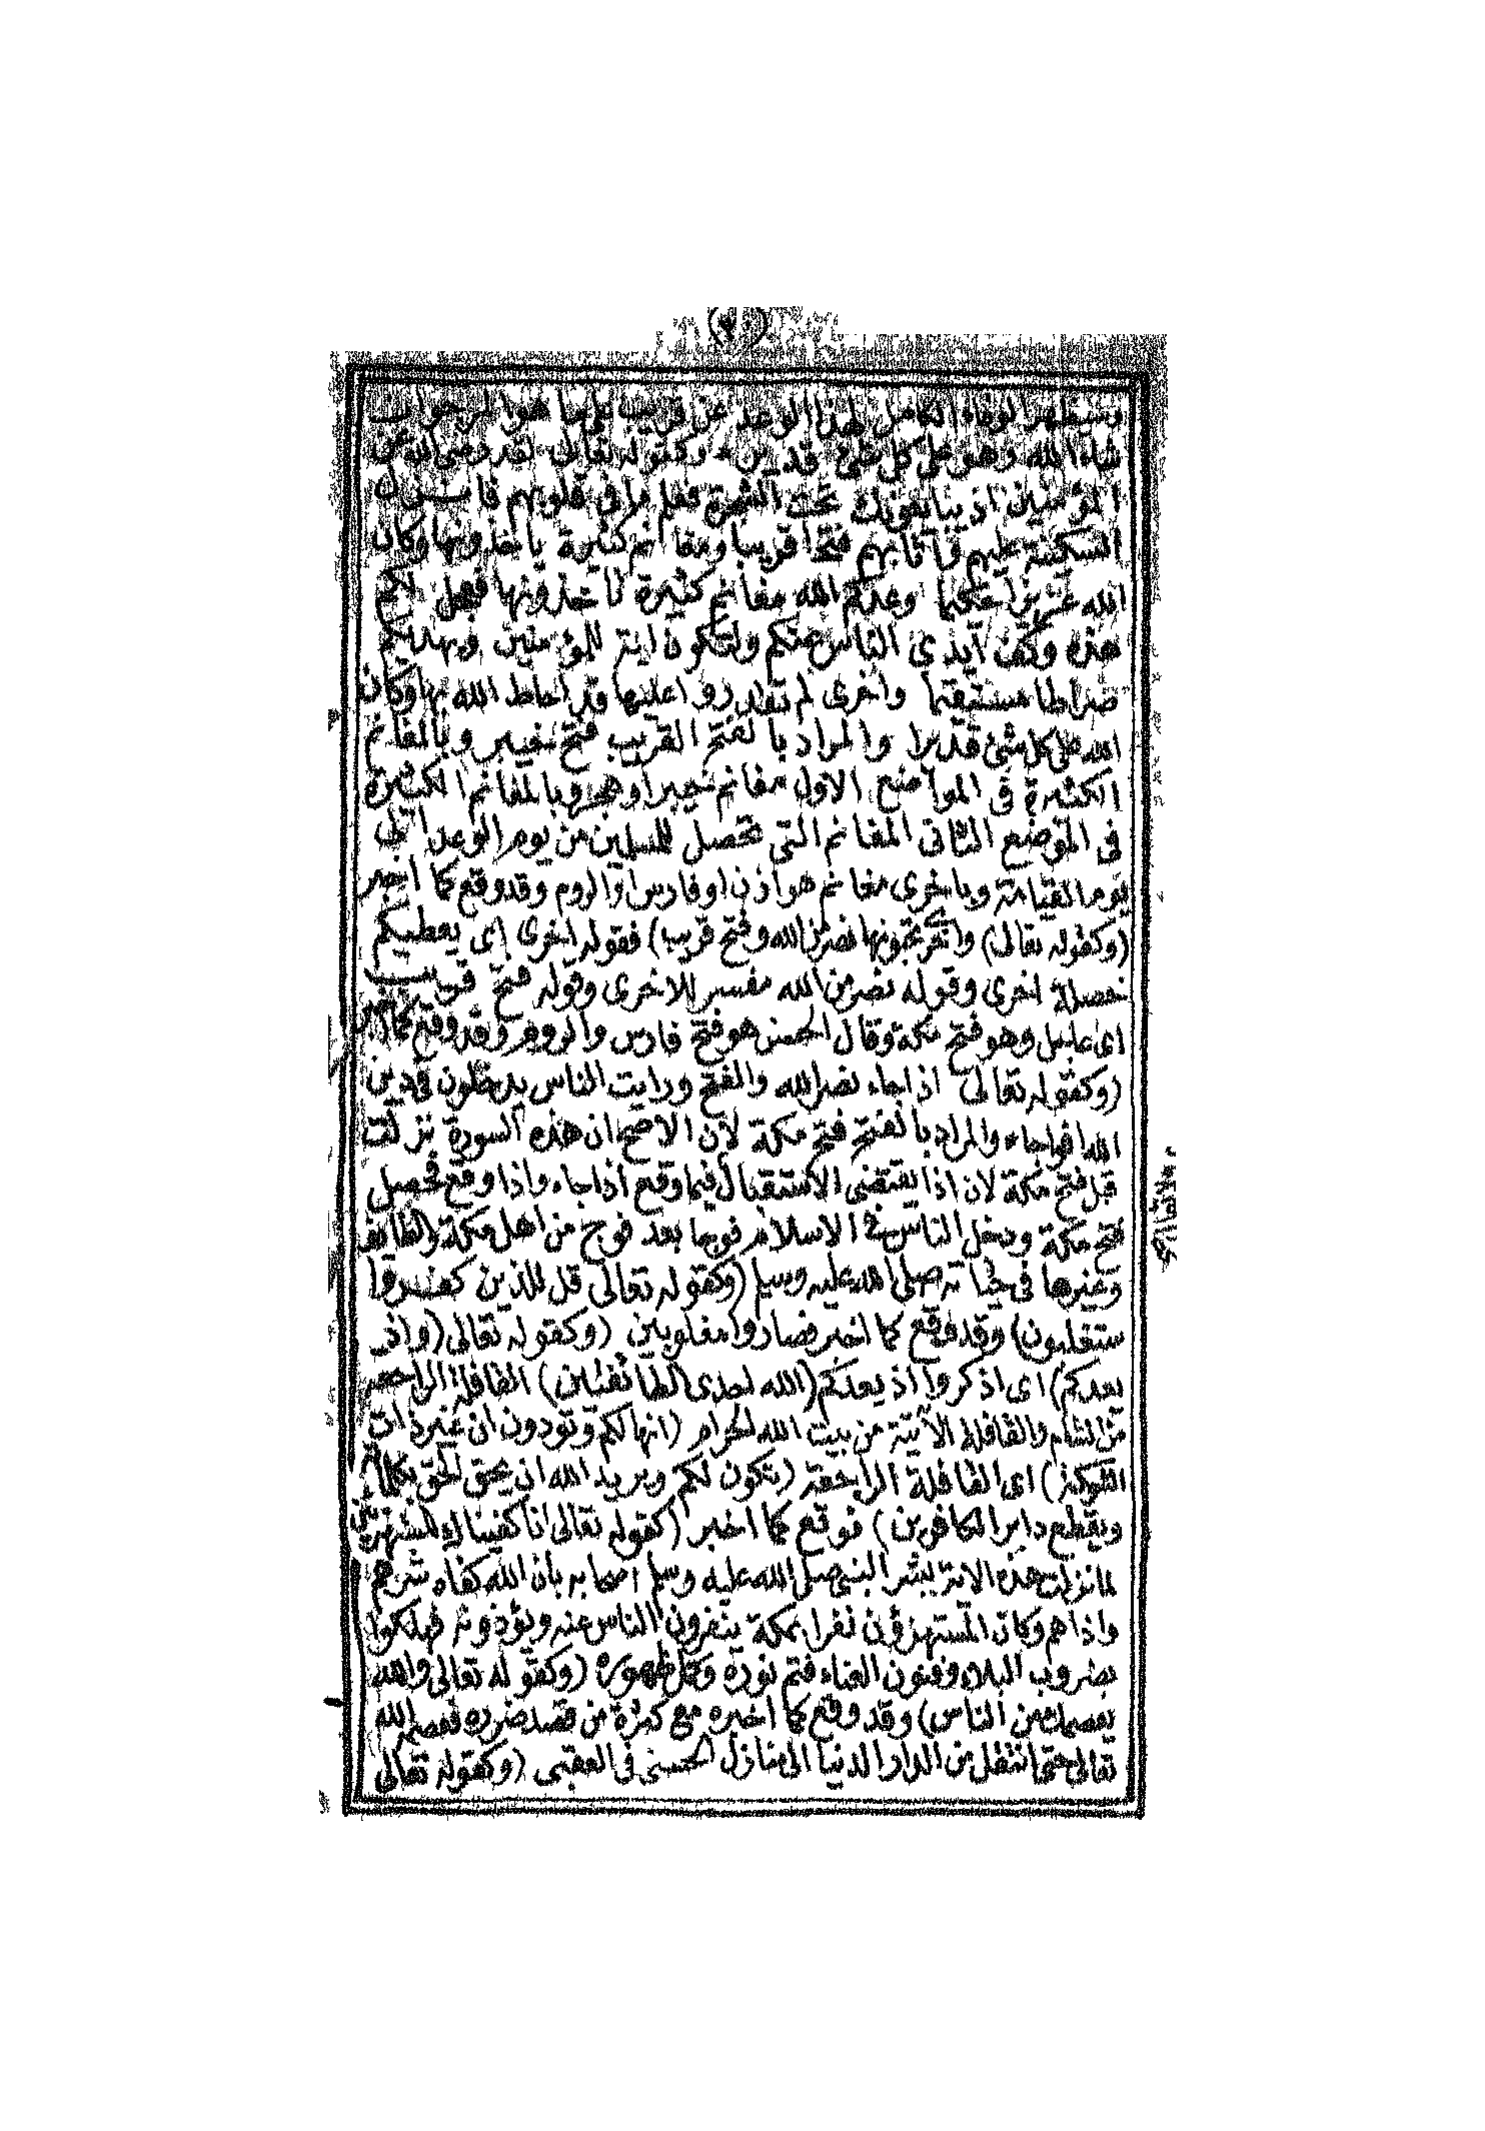 وسيظهر الوفاء الكامل لهذا الوعد عن قريب على ما هو المرجو ان
شاء الله وهو على كل شئ قدير وكقوله تعالى لقد رضى الله عن
المؤمنين اذ يبايعونك تحت الشجرة فعلم ما فى قلوبهم فانزل
السكينة عليهم واثابهم فتحا قريبا ومغانم كثيرة ياخذونها وكان
الله عزيزا حكيما وعدكم الله مغانم كثيرة تاخذونها فعجل لكم
هذه وكف ايدى الناس عنكم ولتكون اية للمؤمنين ويهديكم
صراطا مستقيما واخرى لم تقدروا عليها قد احاط الله بها وكان
الله على كل شئ قديرا والمراد بالفتح القريب فتح خيبر وبالمغانم
الكثيرة فى الموضع الاول مغانم خيبر او هجر وبالمغانم الكثيرة
فى الموضع الثانى المغانم التى تحصل للمسلمين من يوم الوعد الى
يوم القيامة وباخرى مغانم هوازن او فارس او الروم وقد وقع كما اخبر
(وكقوله تعالى) واخرى تحبونها نصر من الله وفتح قريب) فقوله اخرى اى يعطيكم
خصلة اخرى وقوله نصر من الله مفسر للاخرى وقوله فتح قريب
اى عاجل وهو فتح مكة وقال الحسن هو فتح فارس والروم وقد وقع كما اخبر
(وكقوله تعالى اذا جاء نصر الله والفتح ورايت الناس يدخلون فى دين
الله افواجا، والمراد بالفتح فتح مكة لان الاصح ان هذه السورة نزلت
قبل فتح مكة لان اذا يقتضى الاستقبال فيما وقع اذا جاء واذا وقع فحصل
فتح مكة ودخل الناس فى الاسلام فوجا بعد فوج من اهل مكة والطائف
وغيرها فى حياته صلى الله عليه وسلم (وكقوله تعالى قل للذين كفروا
ستغلبون) وقد وقع كما اخبر فصاروا مغلوبين (وكقوله تعالى (واذ
يعدكم) اى اذكروا اذ يعدكم (الله احدى الطائفتين) القافلة الراجعة
من الشام والقافلة الآتية من بيت الله الحرام (انها لكم وتودون ان غير ذات
الشوكة) اى القافلة الراجعة (تكون لكم ويريد الله ان يحق الحق بكلماته
ويقطع دابر الكافرين) فوقع كما اخبر (كقوله تعالى انا كفيناك المستهزئين
لما نزلت هذه الاية بشر النبى صلى الله عليه وسلم اصحابه بان الله كفاه شرهم
واذاهم وكان المستهزؤن نفرا بمكة ينفرون الناس عنه ويؤذونه فهلكوا
بضروب البلاء وفنون العناء فتم نوره وكمل ظهوره (وكقوله تعالى والله
يعصمك من الناس) وقد وقع كما اخبر مع كثرة من قصد ضرره فعصمه الله
تعالى حتى انتقل من الدار الدنيا الى منازل الحسنى فى العقبى (وكقوله تعالى